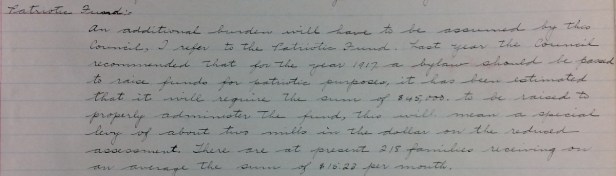 Patriotic Fund:-
An additional burden will have to be assumed by this
Council, I refer to the Patriotic Fund. Last year the Council
recommended that for the year 1917 a bylaw should be passed
to raise funds for patriotic purposes, it has been estimated
that it will require the sum of $45,000. to be raised to
properly administer the fund, this will mean a special
levy of about two mills in the dollar on the reduced
assessment. There are at present 218 families receiving on
an average the sum of $16.22 per month.